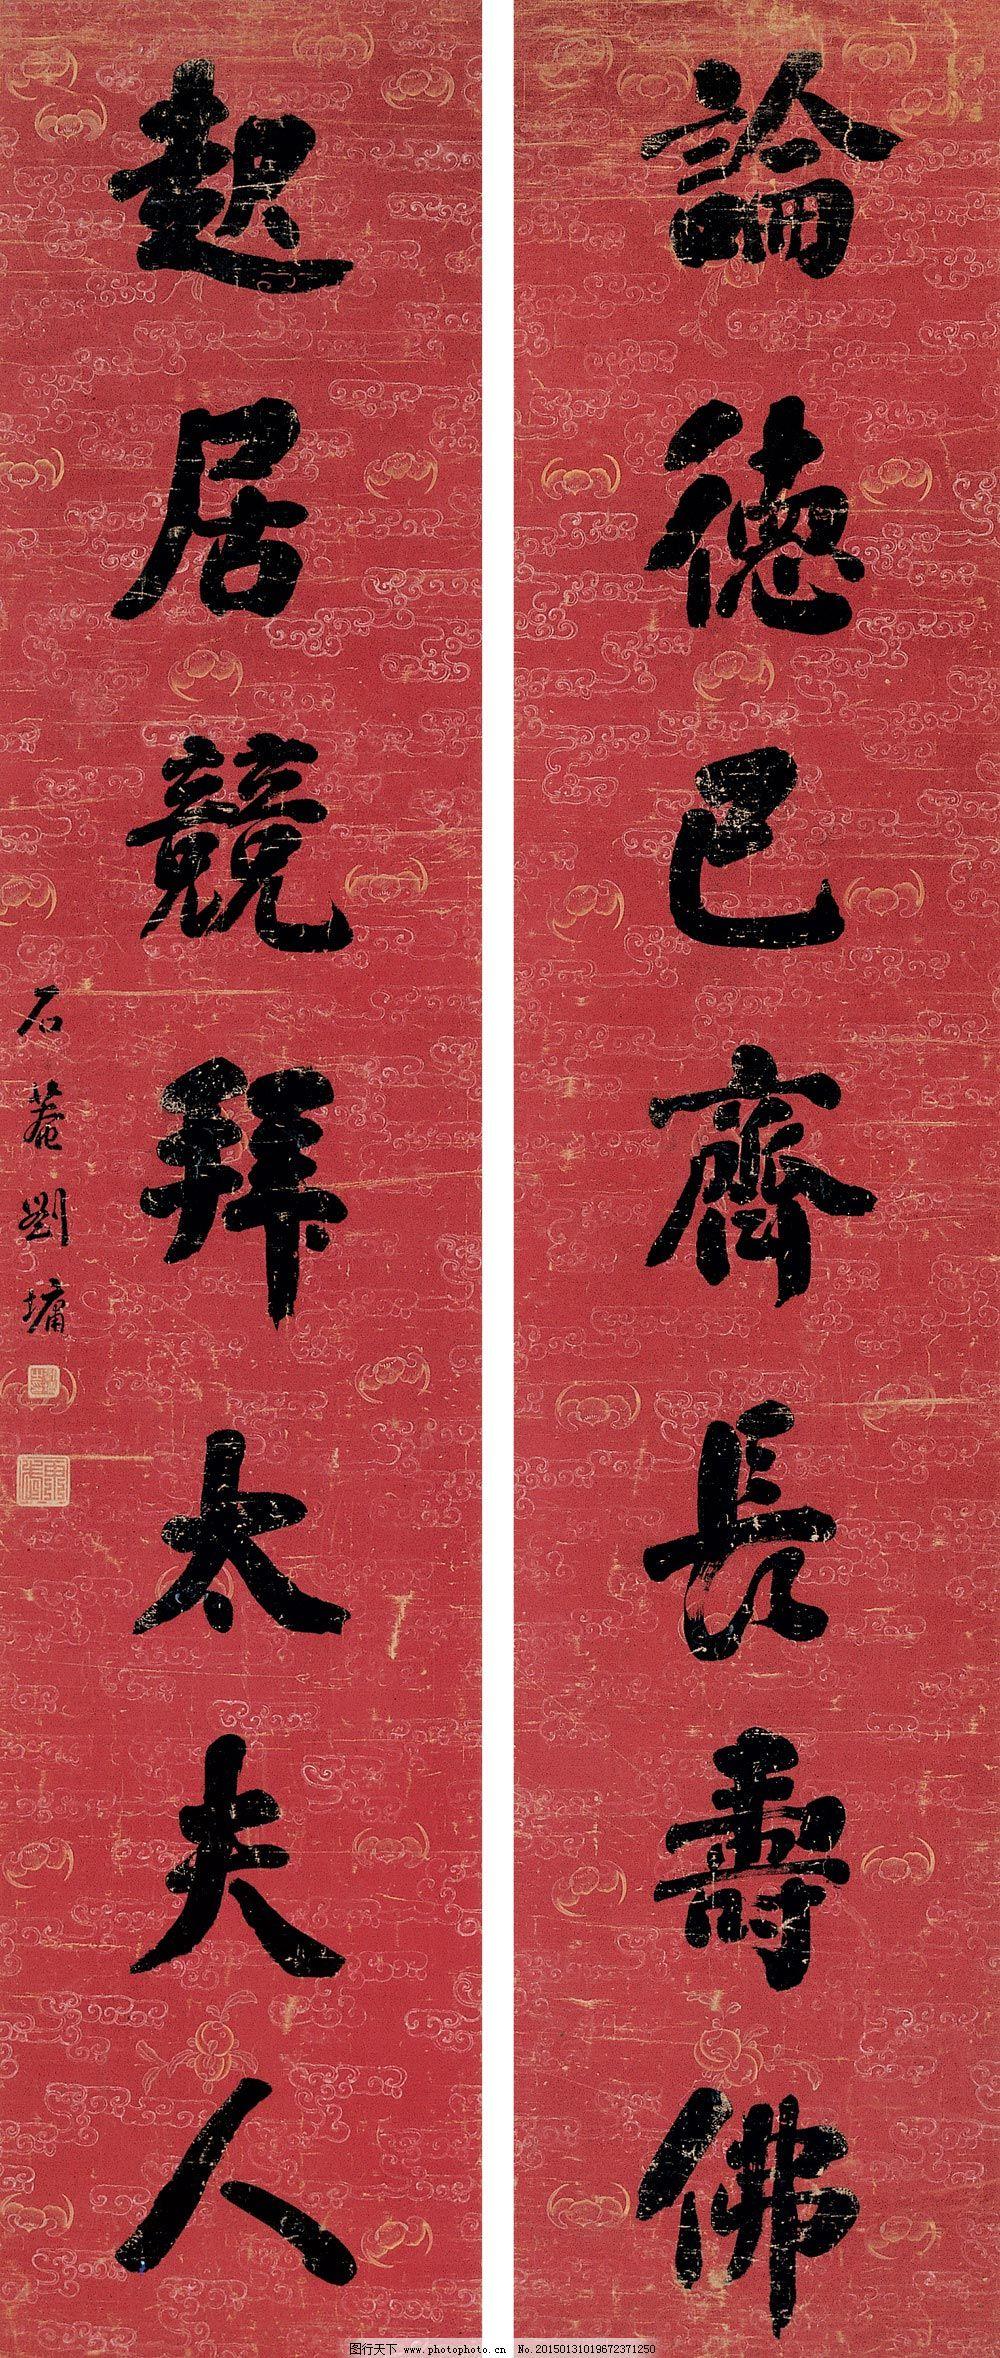 論德已齊長壽佛
起居競拜太夫人
石菴劉墉
图行天下 www.photophoto.cn No.20150131019672371250